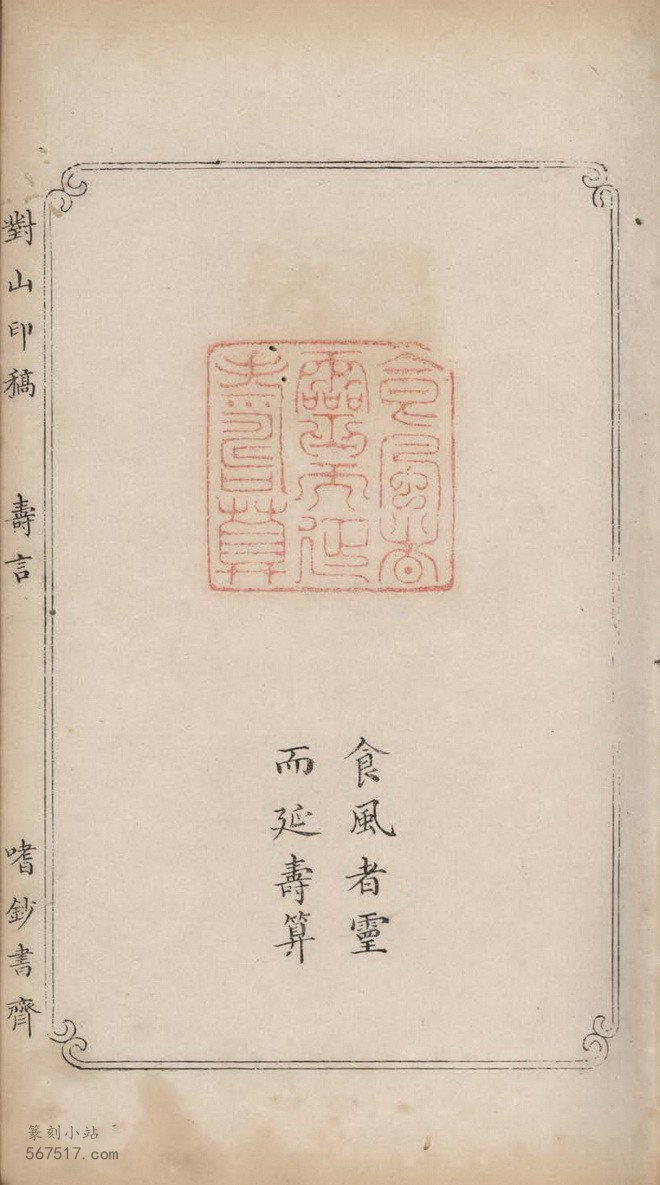 食風者靈而延壽算
食風者靈
而延壽算
對山印稿 壽言 嗜鈔書齊
篆刻小站
567517.com